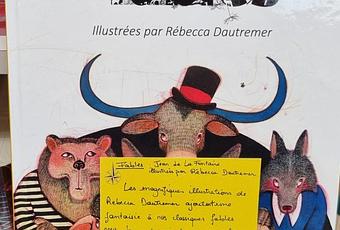 Illustrées par Rébecca Dautremer
Fables Jean de La Fontaine
illustrées par Rébecca Dautremer
Les magnifiques illustrations de
Rébecca Dautremer
fantaisie à nos classiques fables